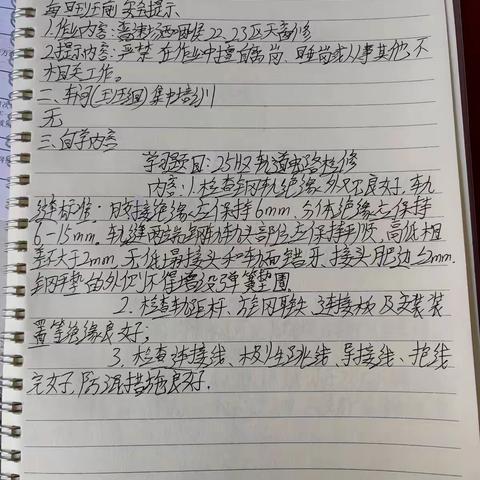 每日班前安全提示
1.作业内容:高速场西咽喉22、23区天窗修
2.提示内容:严禁在作业中擅自离岗、串岗或从事其他不
相关工作。
二、车间(班组)集中培训
无
三、自学内容
学习题目:25HZ轨道电路检修
内容:1.检查钢轨绝缘外观良好.轨
缝标准:胶接绝缘应保持6mm、分体绝缘应保持
6-15mm.轨缝两端钢轨头部应保持平顺,高低相
差不大于2mm,无低塌接头和轨面错牙,接头肥边≤2mm.
钢平垫的外侧不得增设弹簧垫圈
2.检查轨距杆、方向联铁、连接板及安装装
置等绝缘良好;
3.检查连接线、极性跳线、导接线、护线
完好,防混措施良好.